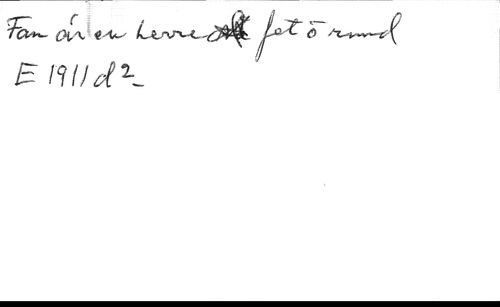 Fan är en herre fet o rund
E 1911 d 2